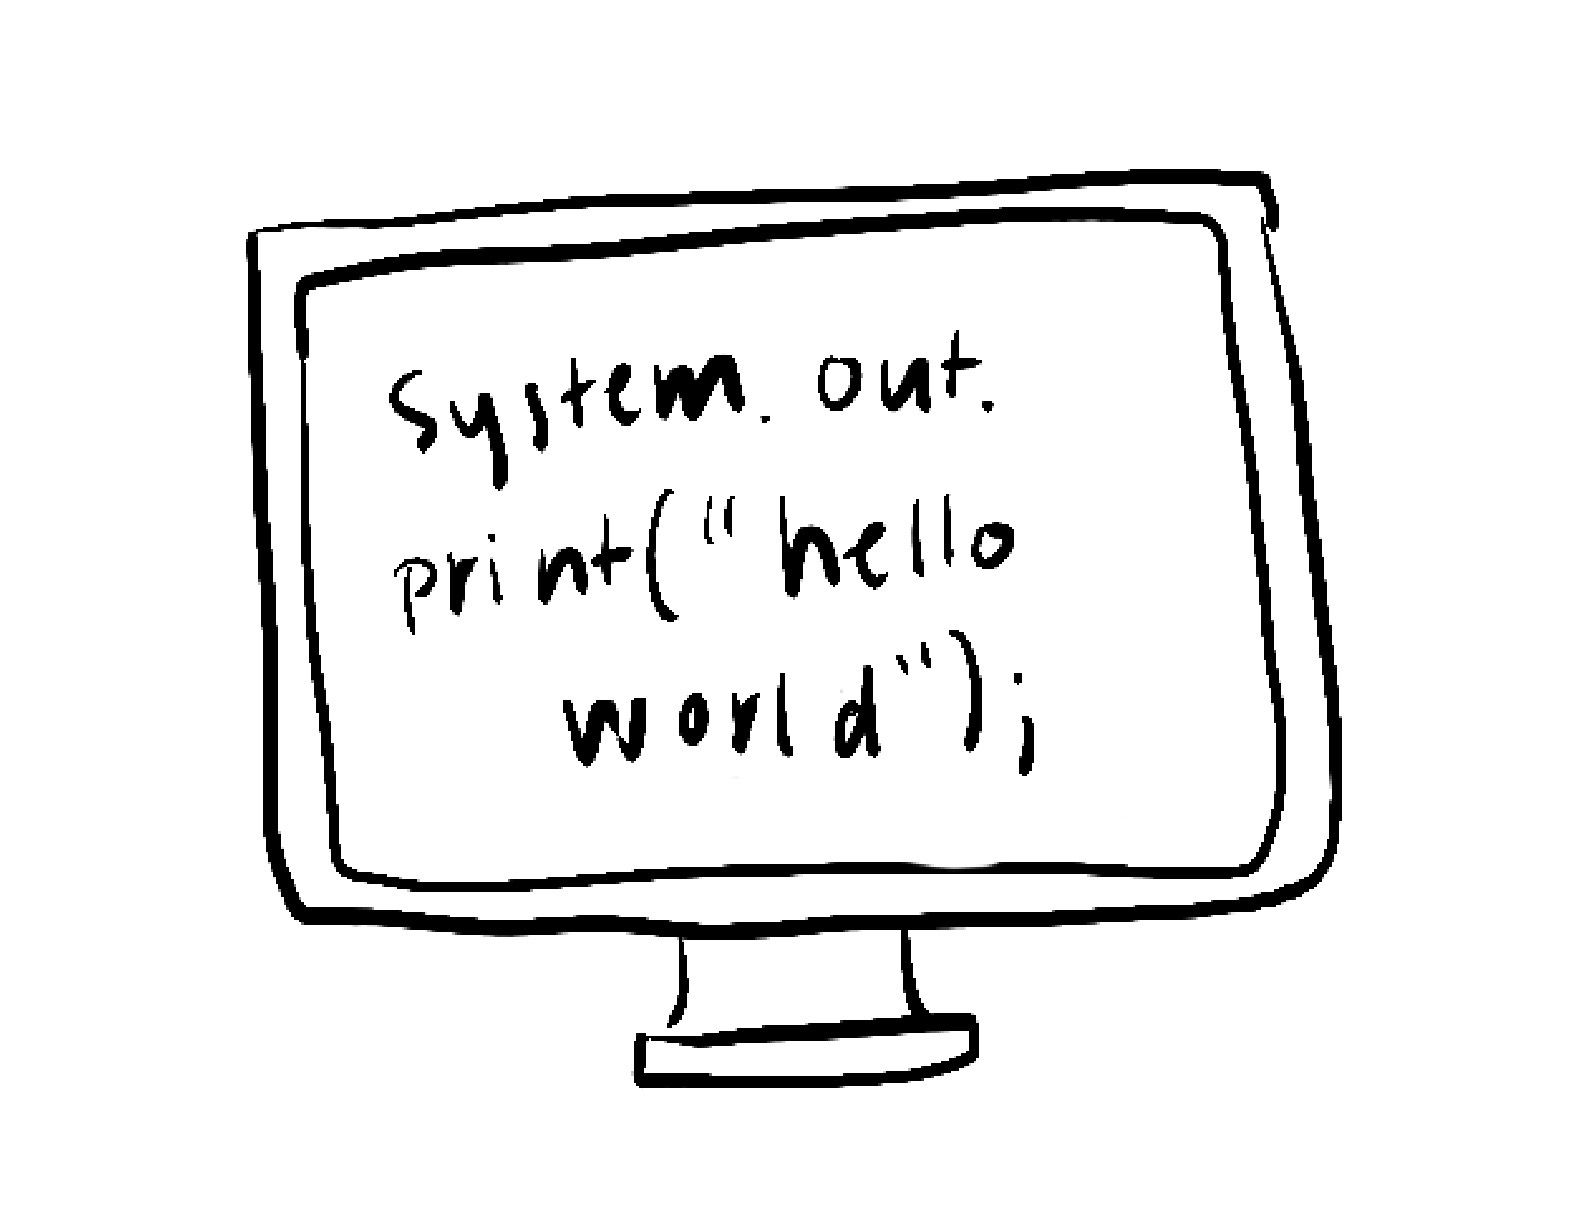 System.out.
print("hello
world");